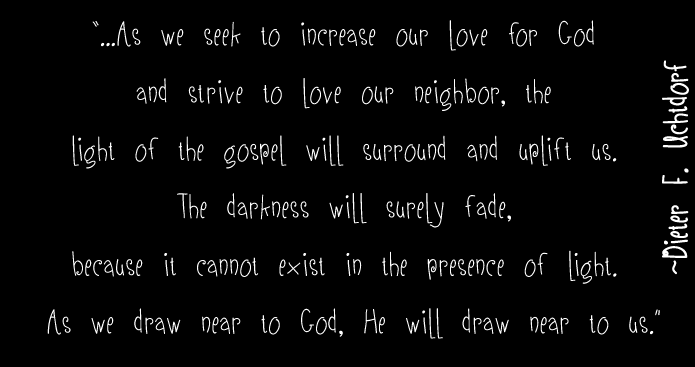 "...As we seek to increase our love for God
and strive to love our neighbor, the
light of the gospel will surround and uplift us.
The darkness will surely fade,
because it cannot exist in the presence of light.
As we draw near to God, He will draw near to us."
~Dieter F. Uchtdorf